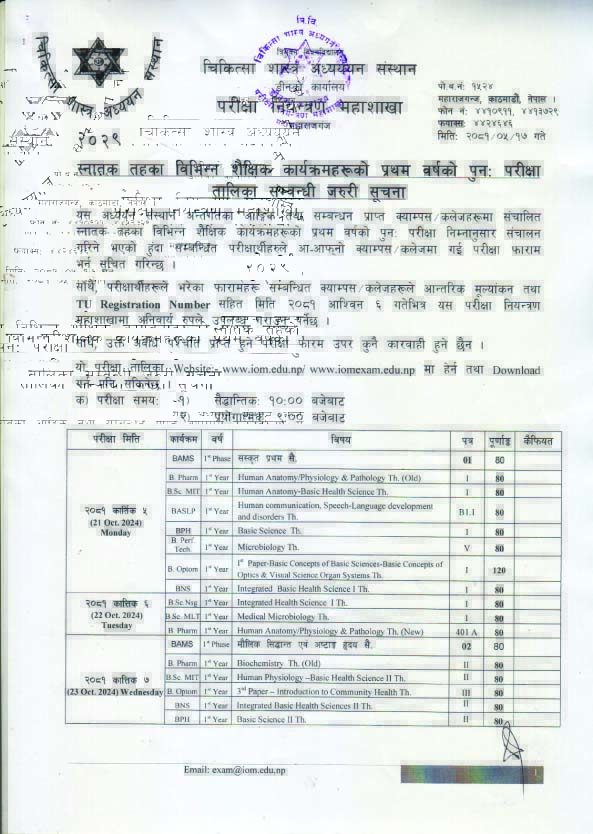 चिकित्सा शास्त्र अध्ययन संस्थान
त्रि.वि.
चिकित्सा शास्त्र अध्ययन संस्थान
डीनको कार्यालय
परीक्षा नियन्त्रण महाशाखा
महाराजगंज
पो.ब.नं: १५२४
महाराजगन्ज, काठमाडौं, नेपाल ।
फोन नं: ४४१०९११, ४४१३७२९
फ्याक्स: ४४२४६४६
मिति: २०८१/०५/१७ गते
२०२९
स्नातक तहका विभिन्न शैक्षिक कार्यक्रमहरूको प्रथम वर्षको पुन: परीक्षा
तालिका सम्बन्धी जरुरी सूचना
यस अध्ययन संस्थान अन्तर्गतका आङ्गिक तथा सम्बन्धन प्राप्त क्याम्पस/कलेजहरूमा संचालित
स्नातक तहका विभिन्न शैक्षिक कार्यक्रमहरूको प्रथम वर्षको पुन: परीक्षा निम्नानुसार संचालन
गरिने भएको हुंदा सम्बन्धित परीक्षार्थीहरुले आ-आफ्नो क्याम्पस/कलेजमा गई परीक्षा फाराम
भर्न सूचित गरिन्छ ।
साथै, परीक्षार्थीहरूले भरेका फारामहरु सम्बन्धित क्याम्पस/कलेजहरूले आन्तरिक मूल्यांकन तथा
TU Registration Number सहित मिति २०८१ आश्विन ६ गतेभित्र यस परीक्षा नियन्त्रण
महाशाखामा अनिवार्य रुपले उपलब्ध गराउनु पर्नेछ ।
मिति, उक्त अवधि पश्चात प्राप्त हुने परीक्षा फारम उपर कुनै कारवाही हुने छैन ।
यो परीक्षा तालिका Website: www.iom.edu.np/ www.iomexam.edu.np मा हेर्न तथा Download
गर्न सकिनेछ ।
क) परीक्षा समय: -१) सैद्धान्तिक: १०:०० बजेबाट
२) प्रयोगात्मक: ९:०० बजेबाट
परीक्षा मिति कार्यक्रम वर्ष विषय पत्र पूर्णाङ्क कैफियत
BAMS 1st Phase संस्कृत प्रथम सै. 01 80
B. Pharm 1st Year Human Anatomy/Physiology & Pathology Th. (Old) I 80
B.Sc. MIT 1st Year Human Anatomy-Basic Health Science Th. I 80
२०८१ कार्तिक ५
(21 Oct. 2024)
Monday
BASLP 1st Year Human communication, Speech-Language development
and disorders Th. B1.1 80
BPH 1st Year Basic Science Th. I 80
B. Perf.
Tech. 1st Year Microbiology Th. V 80
B. Optom 1st Year 1st Paper-Basic Concepts of Basic Sciences-Basic Concepts of
Optics & Visual Science Organ Systems Th. I 120
BNS 1st Year Integrated Basic Health Science I Th. I 80
२०८१ कार्तिक ६
(22 Oct. 2024)
Tuesday
B.Sc Nsg 1st Year Integrated Health Science I Th. I 80
B.Sc. MLT 1st Year Medical Microbiology Th. I 80
B. Pharm 1st Year Human Anatomy/Physiology & Pathology Th. (New) 401 A 80
BAMS 1st Phase मौलिक सिद्धान्त एवं अष्टाङ्ग हृदय सै. 02 80
२०८१ कार्तिक ७
(23 Oct. 2024) Wednesday
B. Pharm 1st Year Biochemistry Th. (Old) II 80
B.Sc. MIT 1st Year Human Physiology –Basic Health Science II Th. II 80
B. Optom 1st Year 3rd Paper – introduction to Community Health Th. III 80
BNS 1st Year Integrated Basic Health Sciences II Th. II 80
BPH 1st Year Basic Science II Th. II 80
Email: exam@iom.edu.np
1